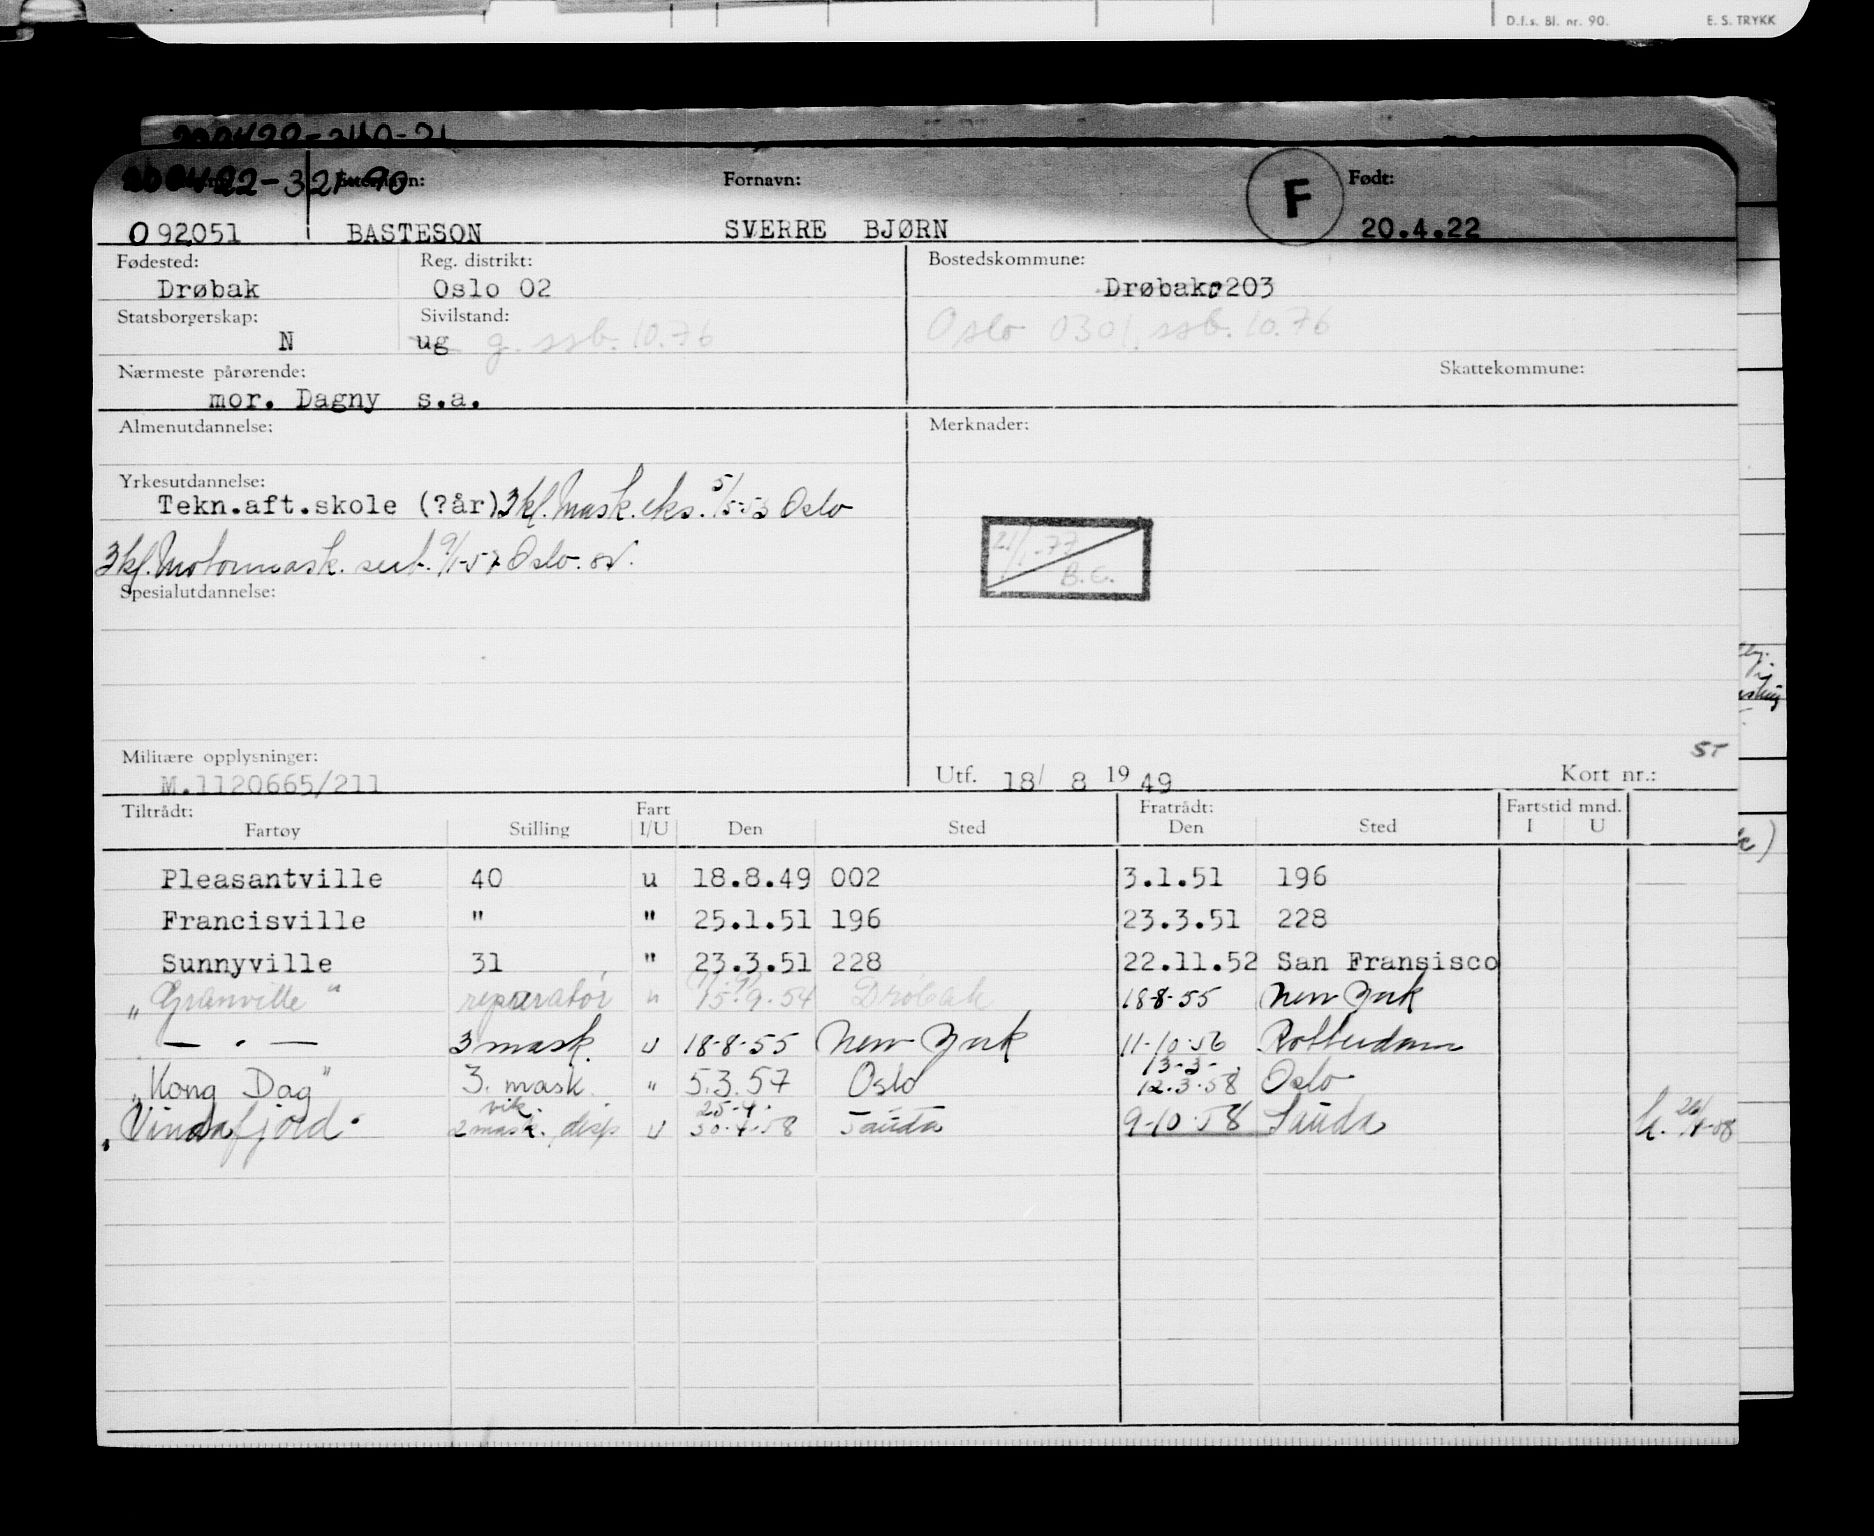 D.f.s. Bl. nr. 90. E. S. TRYKK
200422-32190 Fornavn: F Født:
092051 BASTESON SVERRE BJØRN 20.4.22
Fødested: Reg. distrikt: Bostedskommune:
Drøbak Oslo 02 Drøbak 0203
Statsborgerskap: Sivilstand: Oslo 0301. ssb. 10.76
N ug g. ssb. 10.76
Nærmeste pårørende: Skattekommune:
mor. Dagny s.a.
Almenutdannelse: Merknader:
Yrkesutdannelse:
Tekn.aft.skole (?år) 3kl. Mask. eks. 5/5-53 Oslo
3kl. Motormask. sert. 9/1-57 Oslo.
21/1.-77
B.C.
Spesialutdannelse:
Militære opplysninger: ST
M.1120665/211 Utf. 18/ 8 19 49 Kort nr.:
Tiltrådt: Fart Fratrådt: Fartstid mnd.
Fartøy Stilling I/U Den Sted Den Sted I U
Pleasantville 40 u 18.8.49 002 3.1.51 196
Francisville " " 25.1.51 196 23.3.51 228
Sunnyville 31 " 23.3.51 228 22.11.52 San Fransisco
"Granville" reparatør " 15.9.54 Drøbak 18-8-55 New York
— . — 3 mask. u 18-8-55 New York 11-10-56 Rotterdam
"Kong Dag" 3. mask " 5.3.57 Oslo 13-3- 12.3.58 Oslo
vik. 25-4.
"Vindafjord" 2 mask. disp u 30-4-58 Sauda 9-10-58 Sauda